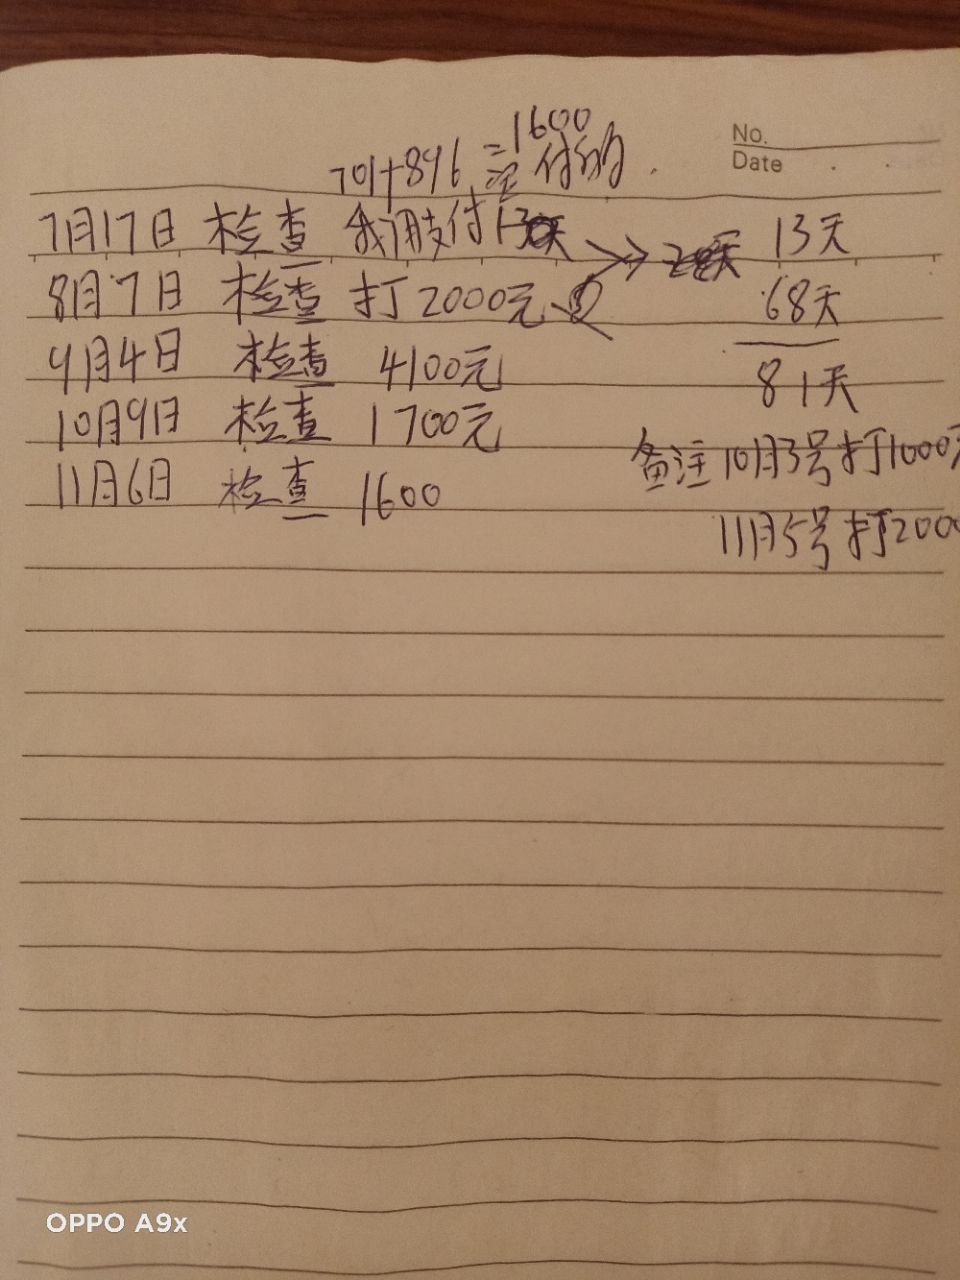 No.
Date
=1600
701+896 付的
7月17日 检查 我们支付13天 13天
8月7日 检查 打2000元 68天
9月4日 检查 4100元 81天
10月9日 检查 1700元
备注10月3号打1000元
11月6日 检查 1600
11月5号打2000
OPPO A9x